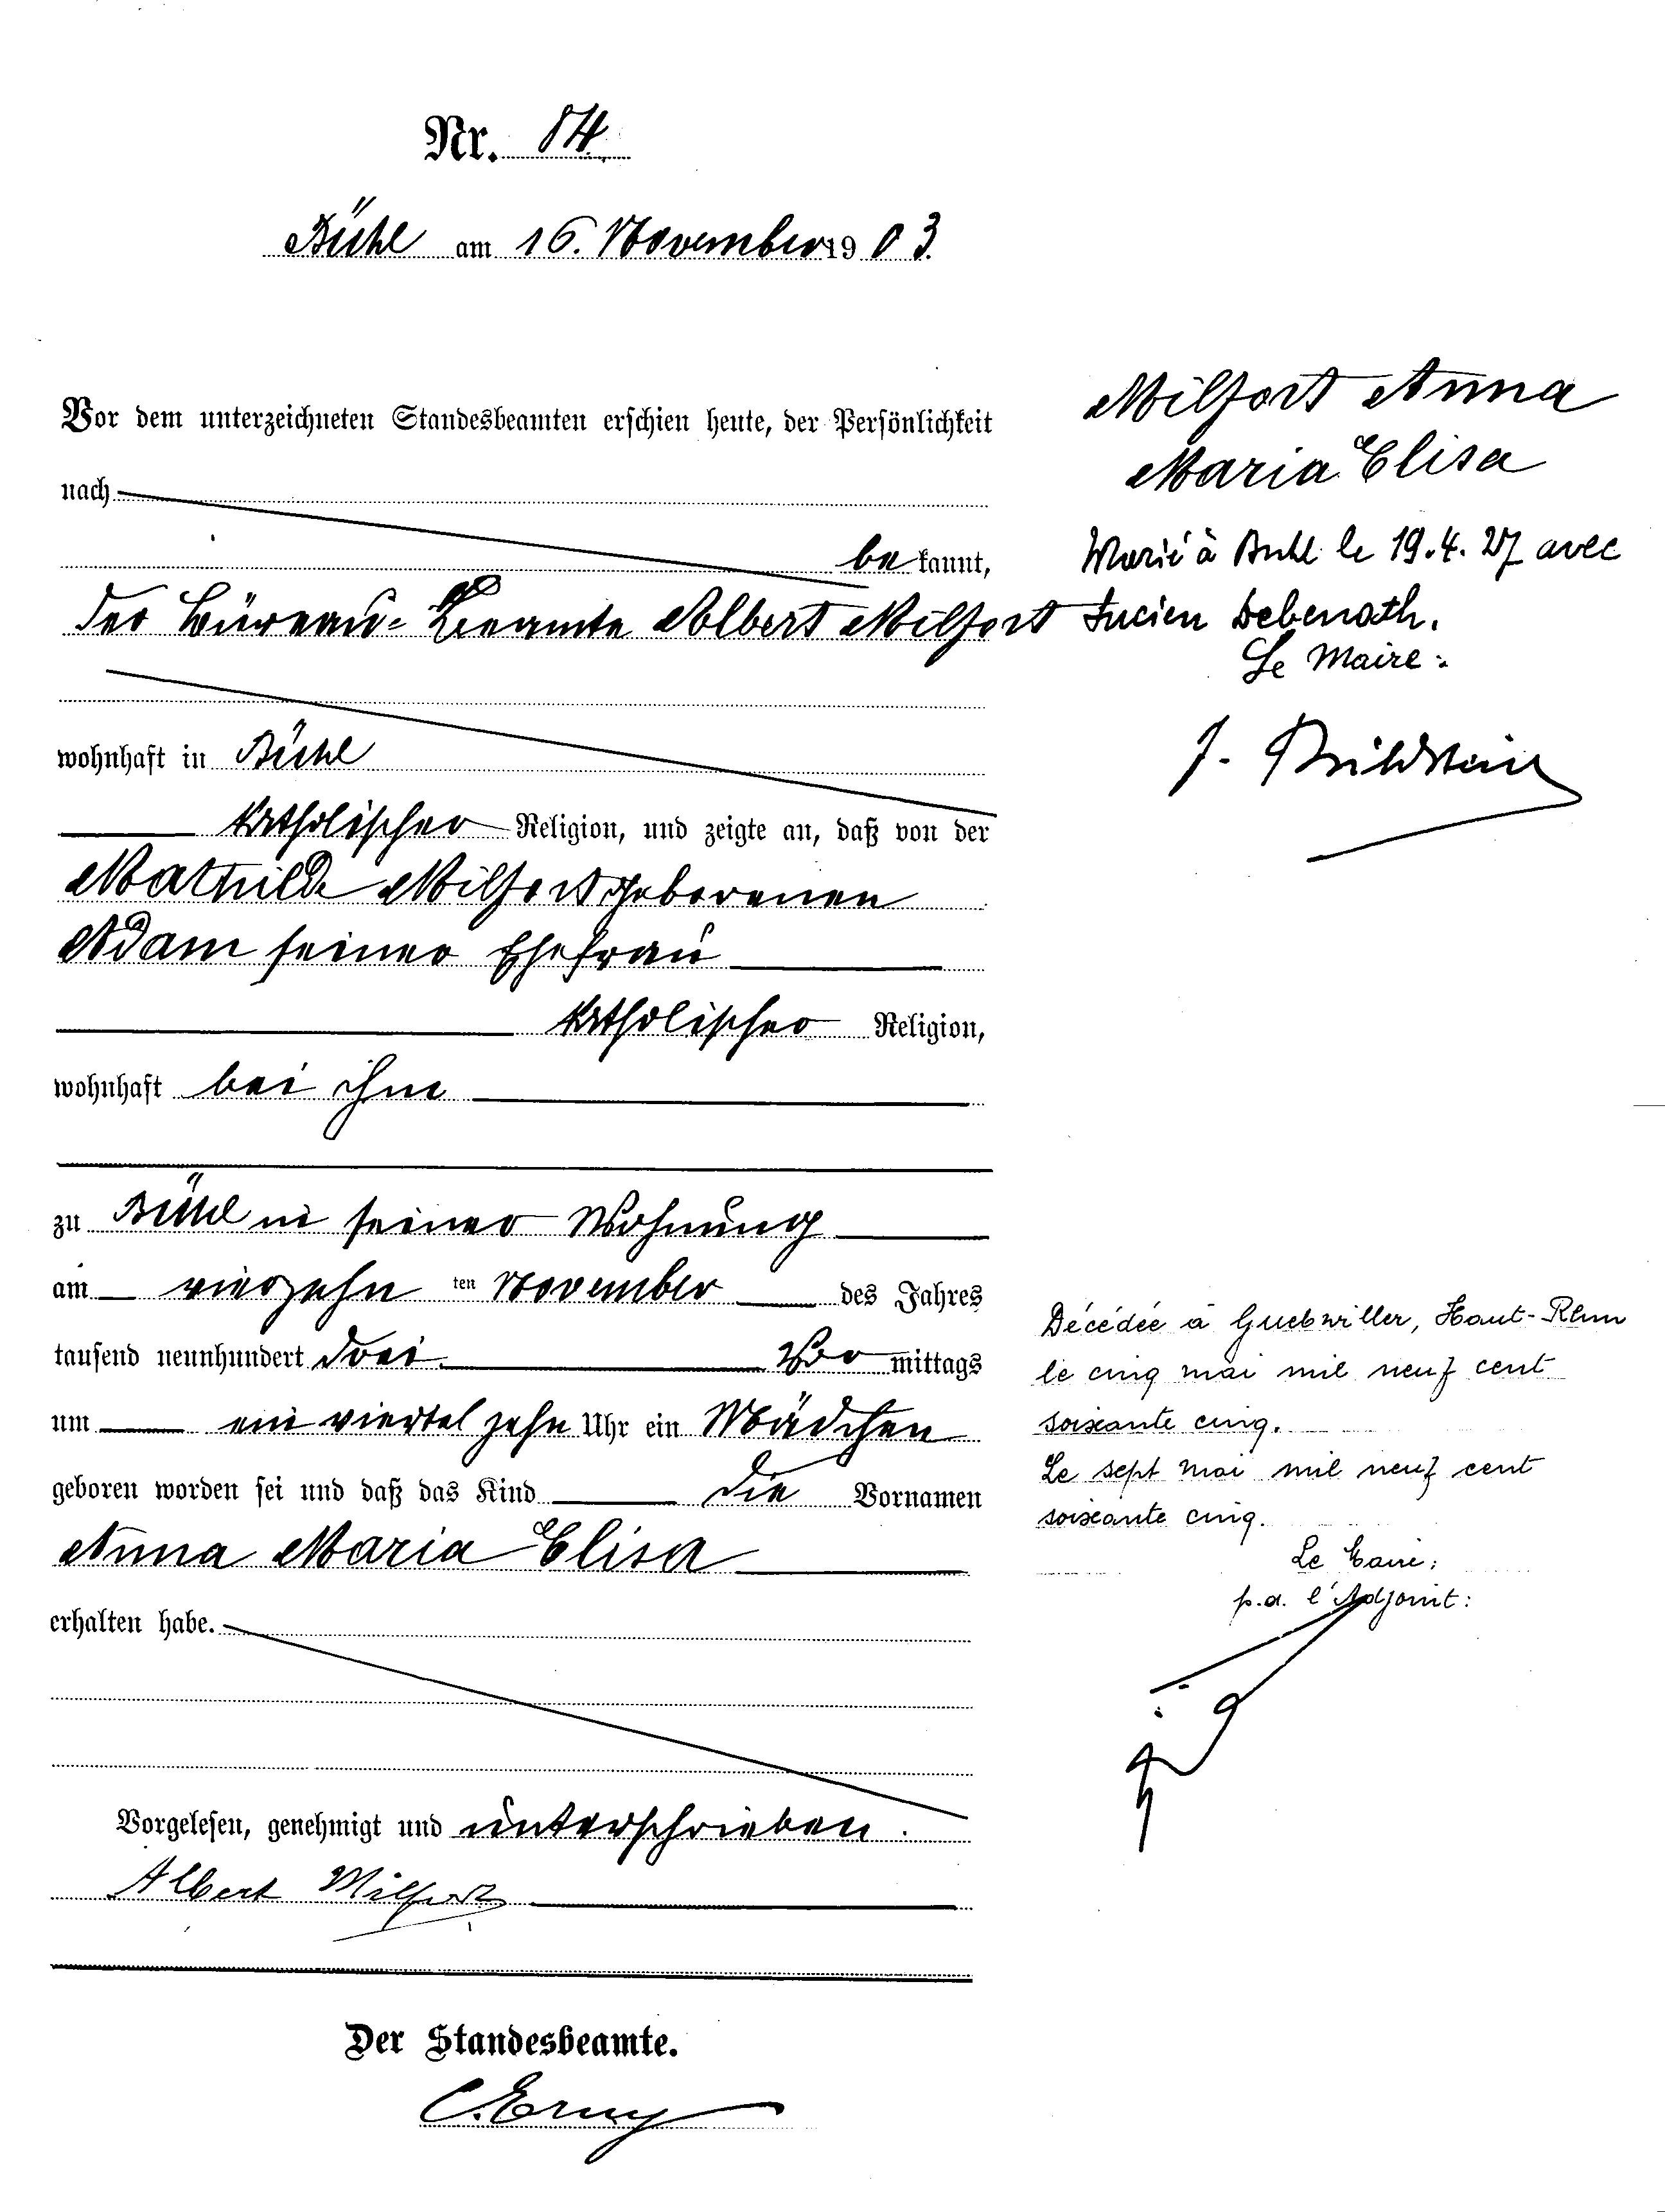 Nr. 84.
Bühl am 16. November 1903.
Vor dem unterzeichneten Standesbeamten erschien heute, der Persönlichkeit
nach
bekannt,
der Büreau-Beamte Albert Milfort
wohnhaft in Bühl
katholischer Religion, und zeigte an, daß von der
Mathilde Milfort geborenen
Adam seiner Ehefrau
katholischer Religion,
wohnhaft bei ihm
zu Bühl in seiner Wohnung
am vierzehn ten November des Jahres
tausend neunhundert drei Vormittags
um ein viertel zehn Uhr ein Mädchen
geboren worden sei und daß das Kind die Vornamen
Anna Maria Elisa
erhalten habe.
Vorgelesen, genehmigt und unterschrieben.
Albert Milfort
Der Standesbeamte.
C. Erny
Milfort Anna
Maria Elisa
Marié à Buhl le 19.4.27 avec
Lucien Debenath.
Le Maire:
J.
Décédée à Guebwiller, Haut-Rhin
le cinq mai mil neuf cent
soixante cinq.
Le sept mai mil neuf cent
soixante cinq.
Le Maire:
p.d. l'Adjoint: